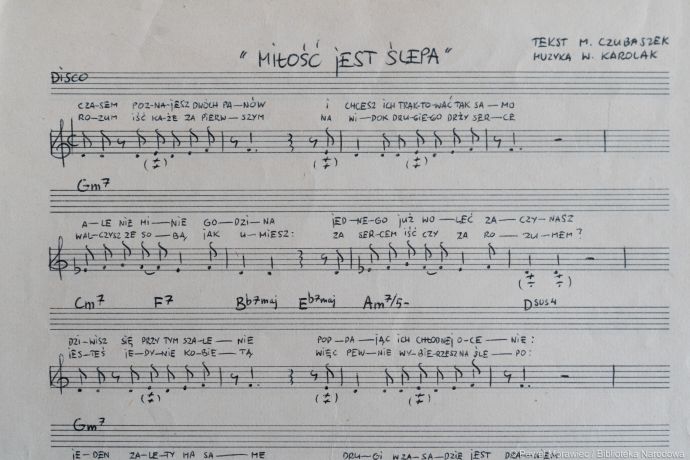 "MIŁOŚĆ JEST ŚLEPA"
TEKST M. CZUBASZEK
MUZYKA W. KAROLAK
DISCO
CZA-SEM POZ-NA-JESZ DWÓCH PA-NÓW I CHCESZ ICH TRAK-TO-WAĆ TAK SA-MO
RO-ZUM IŚĆ KA-ŻE ZA PIERW-SZYM NA WI-DOK DRU-GIE-GO DRŻY SER-CE
Gm7
A-LE NIE MI-NIE GO-DZI-NA JED-NE-GO JUŻ WO-LEĆ ZA-CZY-NASZ
WAL-CZYSZ ZE SO-BĄ JAK U-MIESZ: ZA SER-CEM IŚĆ CZY ZA RO-ZU-MEM?
Cm7 F7 Bb7maj Eb7maj Am7/5- Dsus4
DZI-WISZ SIĘ PRZY TYM SZA-LE-NIE POD-DA-JĄC ICH CHŁODNEJ O-CE-NIE:
JES-TEŚ JE-DY-NIE KO-BIE-TĄ WIĘC PEW-NIE WY-BIE-RZESZ NA ŚLE-PO:
Gm7
JE-DEN ZA-LE-TY MA SA-ME DRU-GI W ZA-SA-DZIE JEST
Paweł Morawiec / Biblioteka Narodowa